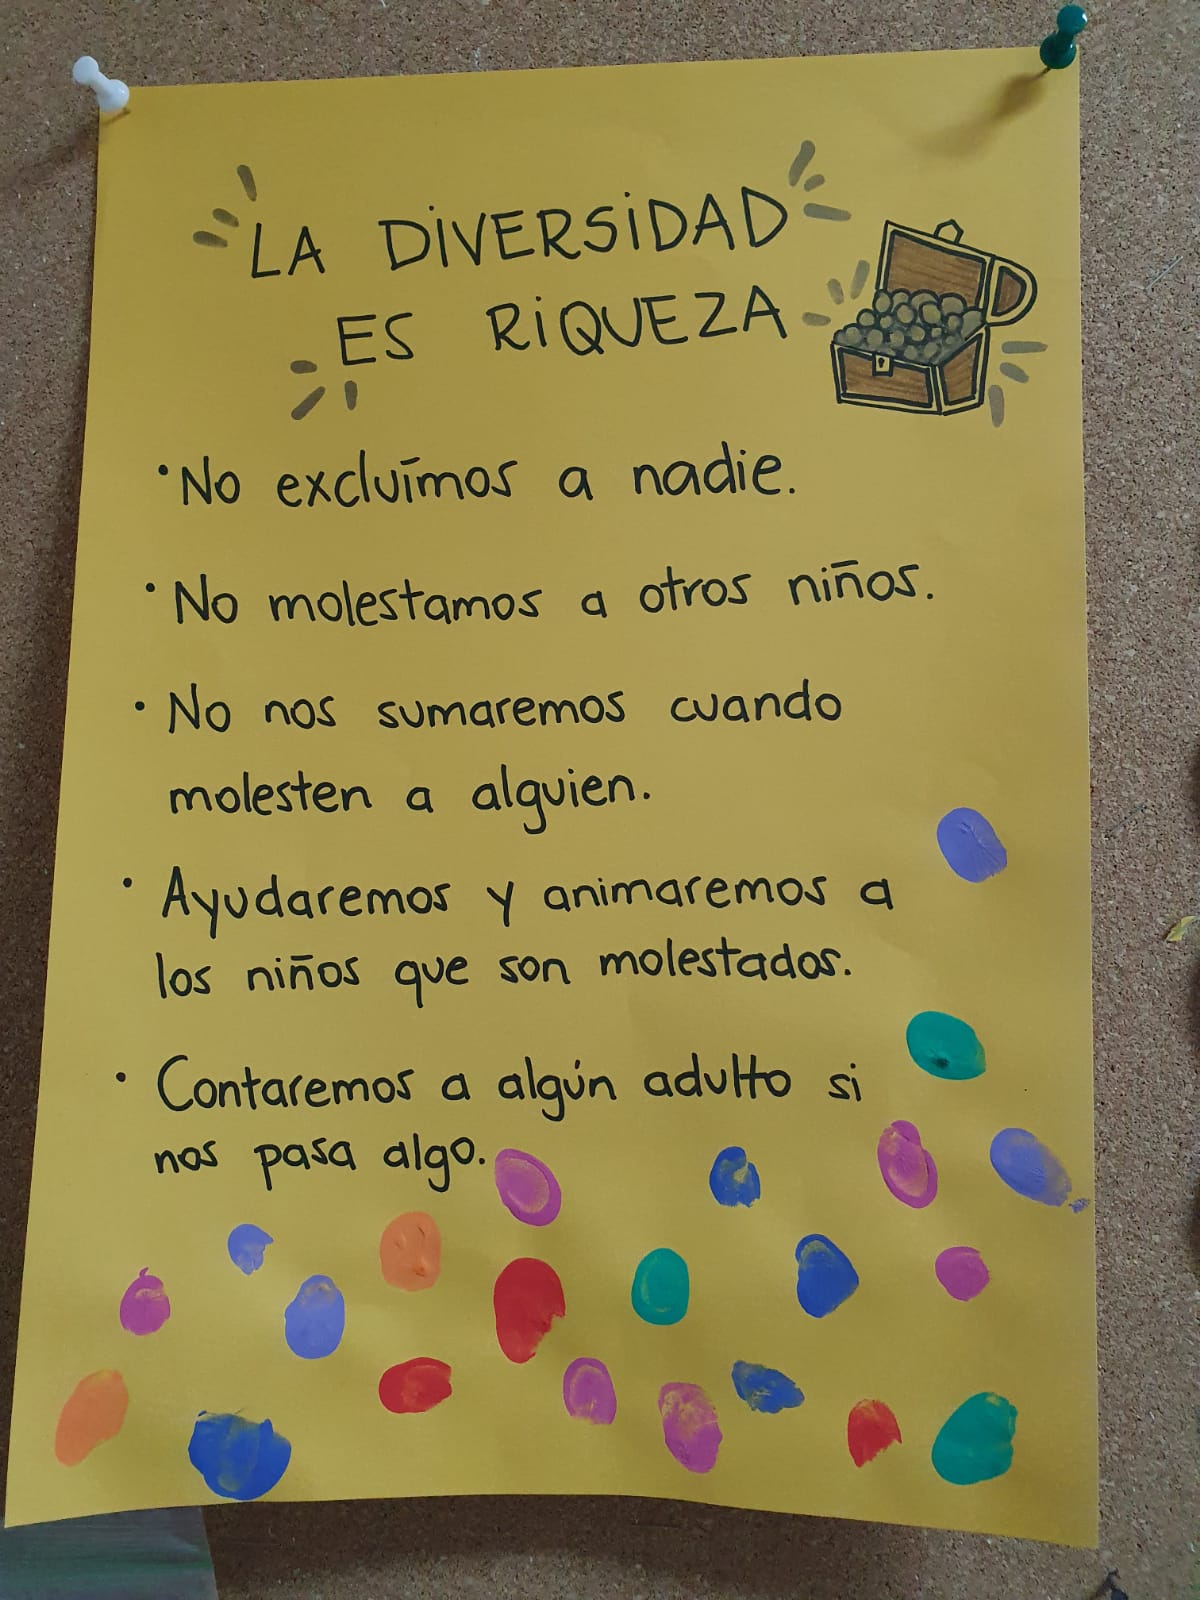 LA DiVERSiDAD
ES RiQUEZA
• No excluímos a nadie.
• No molestamos a otros niños.
• No nos sumaremos cuando
molesten a alguien.
• Ayudaremos y animaremos a
los niños que son molestados.
• Contaremos a algún adulto si
nos pasa algo.